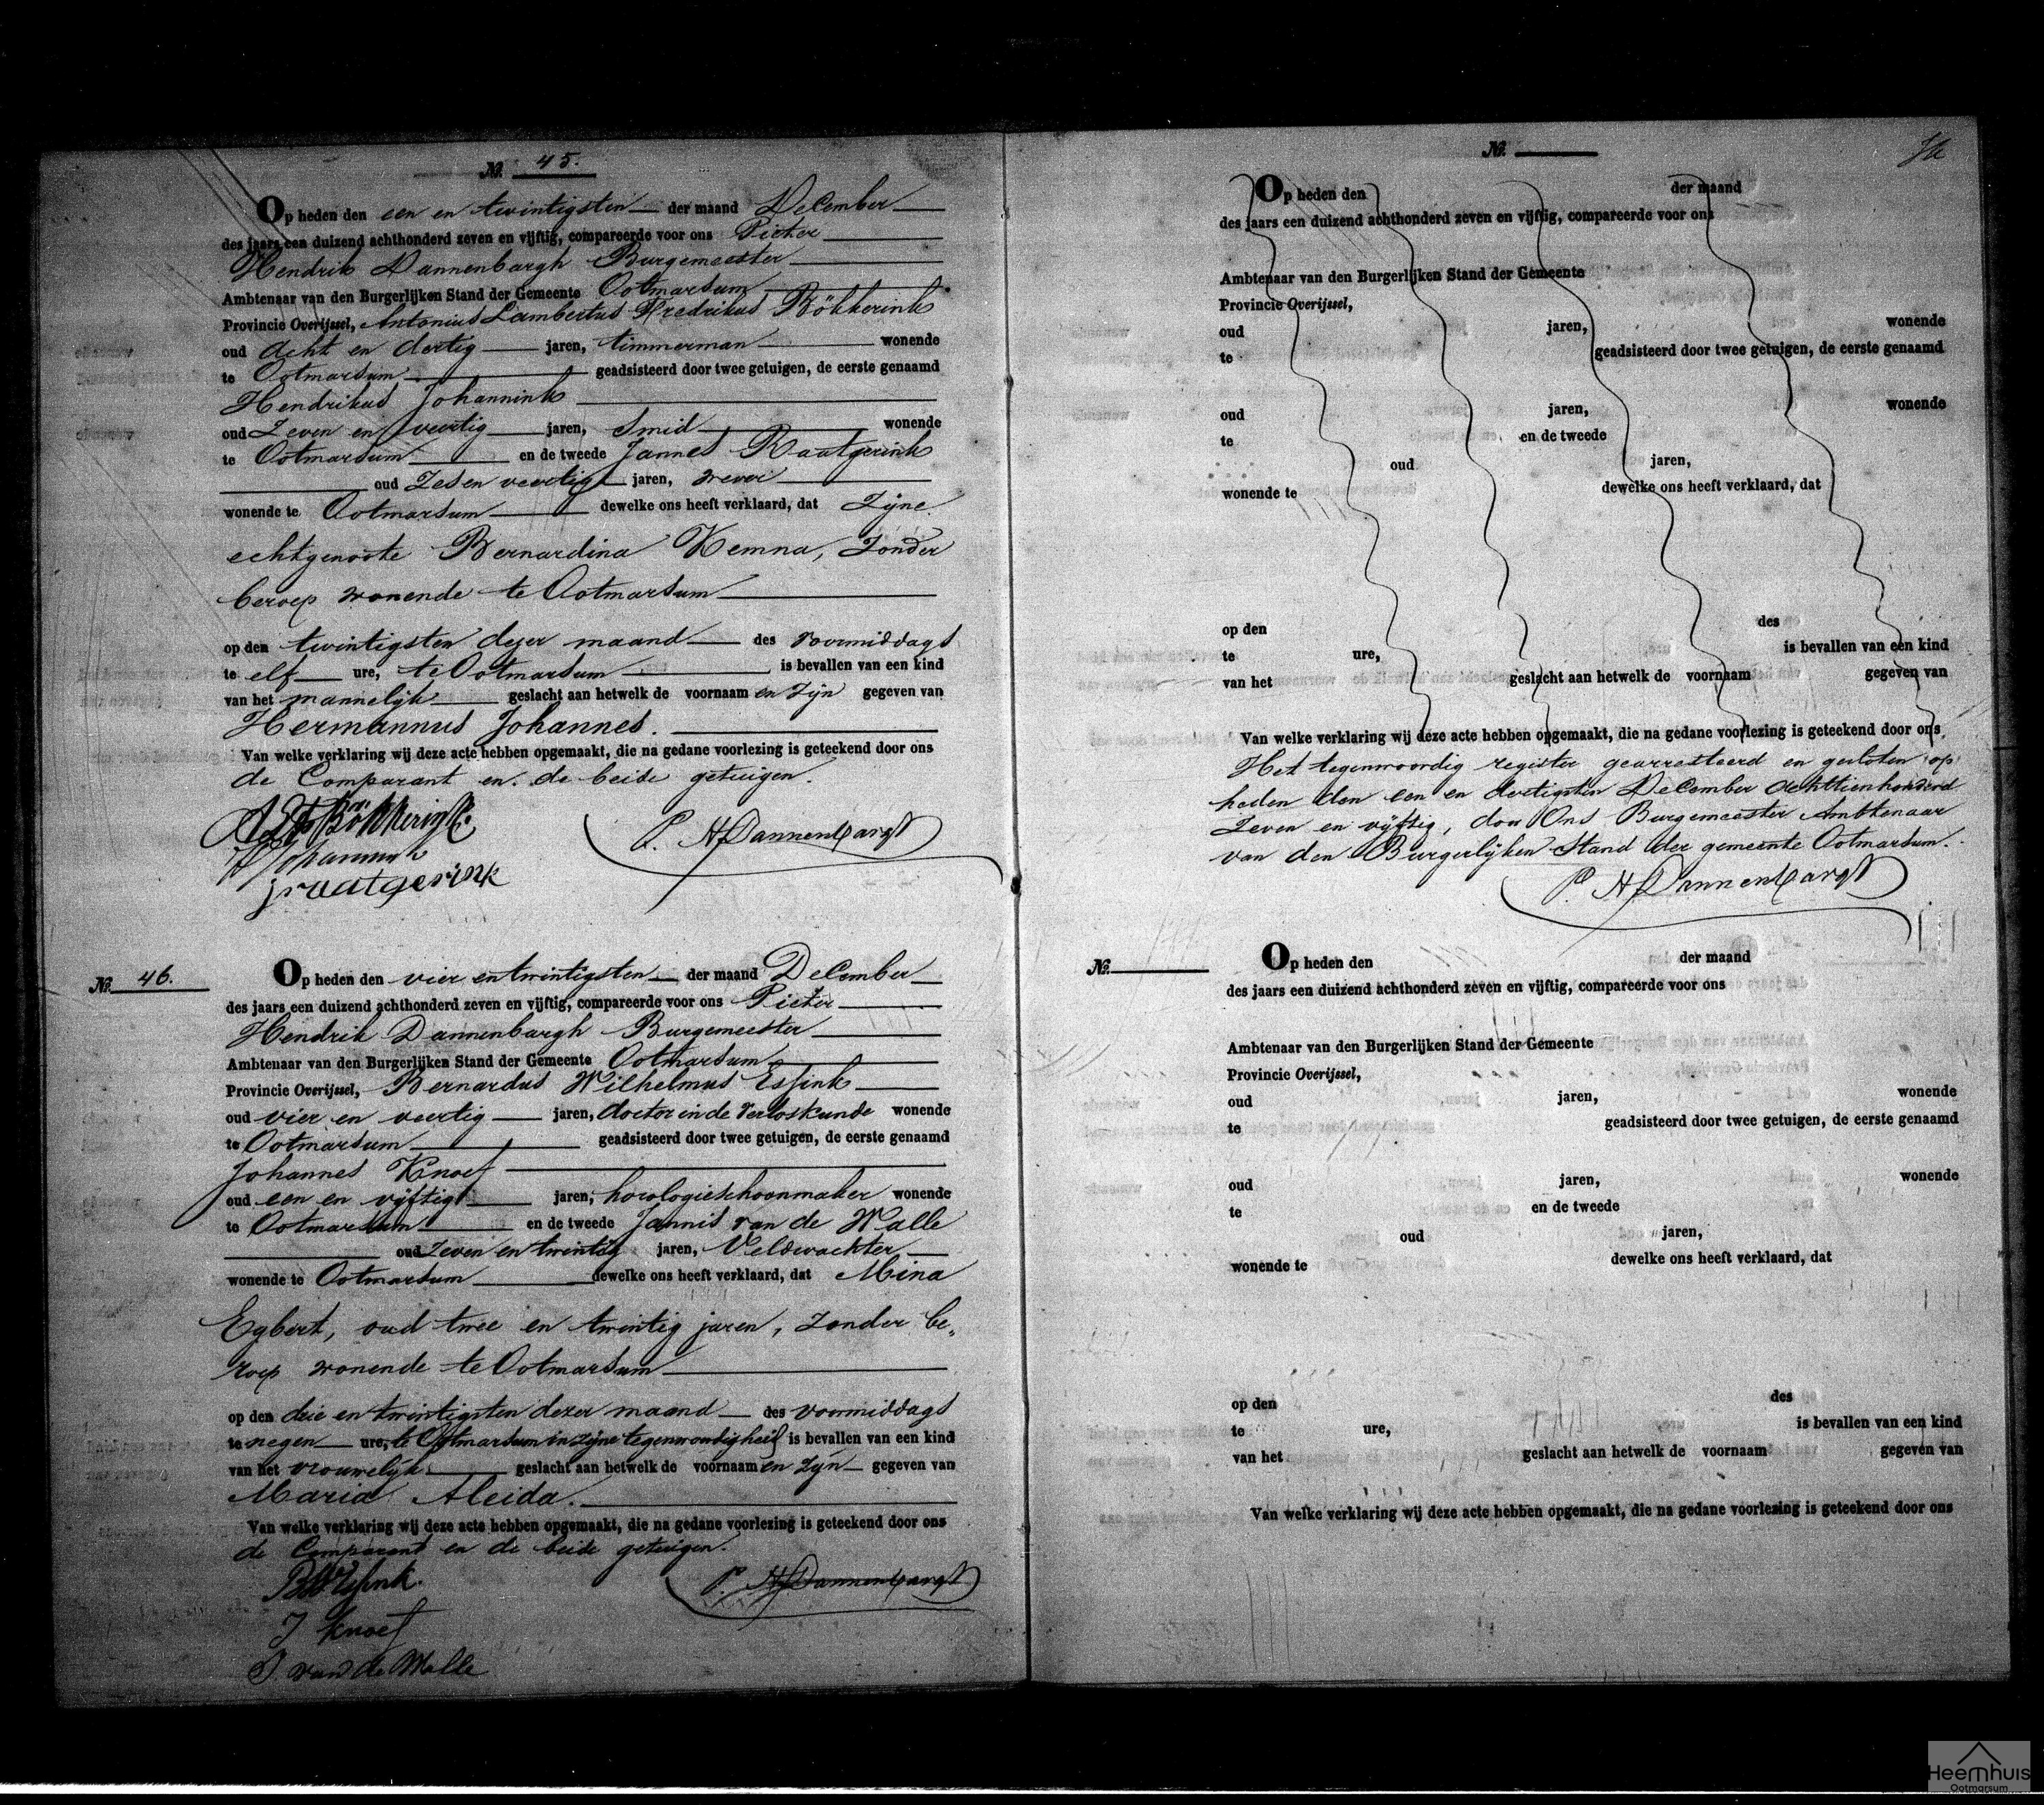 No. 45.
Op heden den een en twintigsten der maand December
des jaars een duizend achthonderd zeven en vijftig, compareerde voor ons Pieter
Hendrik Dannenbargh Burgemeester
Ambtenaar van den Burgerlijken Stand der Gemeente Ootmarsum
Provincie Overijssel, Antonius Lambertus Fredrikus Bökkerink
oud acht en dertig jaren, timmerman wonende
te Ootmarsum geadsisteerd door twee getuigen, de eerste genaamd
Hendrikus Johannink
oud Zeven en veertig jaren, Smid wonende
te Ootmarsum en de tweede Jannes Raatgerink
oud Zes en veertig jaren, wever
wonende te Ootmarsum dewelke ons heeft verklaard, dat Zijne
echtgenoote Bernardina Kemna, Zonder
beroep wonende te Ootmarsum
op den twintigsten dezer maand des voormiddags
te elf ure, te Ootmarsum is bevallen van een kind
van het mannelijk geslacht aan hetwelk de voornaam en Zijn gegeven van
Hermannus Johannes.
Van welke verklaring wij deze acte hebben opgemaakt, die na gedane voorlezing is geteekend door ons
de Comparant en de beide getuigen.
Bökkerink
P. H Dannenbargh
Johannink
j raatgerink
No. 46.
Op heden den vier en twintigsten der maand December
des jaars een duizend achthonderd zeven en vijftig, compareerde voor ons Pieter
Hendrik Dannenbargh Burgemeester
Ambtenaar van den Burgerlijken Stand der Gemeente Ootmarsum
Provincie Overijssel, Bernardus Wilhelmus Essink
oud vier en veertig jaren, doctor in de verloskunde wonende
te Ootmarsum geadsisteerd door twee getuigen, de eerste genaamd
Johannes Knoef
oud een en vijftig jaren, horologieschoonmaker wonende
te Ootmarsum en de tweede Jannis van de Walle
oud Zeven en twintig jaren, Veldwachter
wonende te Ootmarsum dewelke ons heeft verklaard, dat Mina
Egbert, oud twee en twintig jaren, Zonder be„
roep wonende te Ootmarsum
op den drie en twintigsten dezer maand des voormiddags
te negen ure, te Ootmarsum in zijne tegenwoordigheid is bevallen van een kind
van het vrouwelijk geslacht aan hetwelk de voornaam en Zijn gegeven van
Maria Aleida.
Van welke verklaring wij deze acte hebben opgemaakt, die na gedane voorlezing is geteekend door ons
de Comparant en de beide getuigen.
BW Essink.
P. H Dannenbargh
J Knoef
J. van de Walle
No.
Op heden den der maand
des jaars een duizend achthonderd zeven en vijftig, compareerde voor ons
Ambtenaar van den Burgerlijken Stand der Gemeente
Provincie Overijssel,
oud jaren, wonende
te geadsisteerd door twee getuigen, de eerste genaamd
oud jaren, wonende
te en de tweede
oud jaren,
wonende te dewelke ons heeft verklaard, dat
op den des
te ure, is bevallen van een kind
van het geslacht aan hetwelk de voornaam gegeven van
Van welke verklaring wij deze acte hebben opgemaakt, die na gedane voorlezing is geteekend door ons
Het tegenwoordig register gearresteerd en gesloten op
heden den een en dertigsten December achttienhonderd
Zeven en vijftig, door Ons Burgemeester Ambtenaar
van den Burgerlijken Stand der gemeente Ootmarsum.
P. H Dannenbargh
No.
Op heden den der maand
des jaars een duizend achthonderd zeven en vijftig, compareerde voor ons
Ambtenaar van den Burgerlijken Stand der Gemeente
Provincie Overijssel,
oud jaren, wonende
te geadsisteerd door twee getuigen, de eerste genaamd
oud jaren, wonende
te en de tweede
oud jaren,
wonende te dewelke ons heeft verklaard, dat
op den des
te ure, is bevallen van een kind
van het geslacht aan hetwelk de voornaam gegeven van
Van welke verklaring wij deze acte hebben opgemaakt, die na gedane voorlezing is geteekend door ons
Heemhuis
Ootmarsum